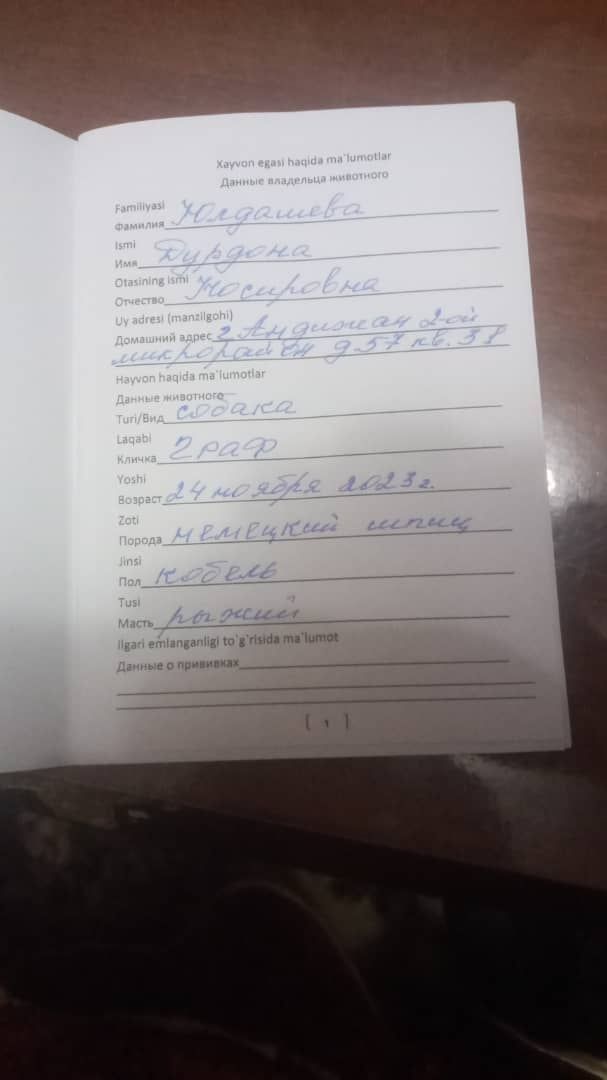 Xayvon egasi haqida ma`lumotlar
Данные владельца животного
Familiyasi
Фамилия Юлдашева
Ismi
Имя Дурдона
Otasining ismi
Отчество Носировна
Uy adresi (manzilgohi)
Домашний адрес г Андижан 2-ой
микрорайон д57 кв. 38
Hayvon haqida ma`lumotlar
Данные животного
Turi/Вид собака
Laqabi
Кличка Граф
Yoshi
Возраст 24 ноября 2023г.
Zoti
Порода немецкий шпиц
Jinsi
Пол кобель
Tusi
Масть рыжий
Ilgari emlanganligi to`g`risida ma`lumot
Данные о прививках
[ 1 ]